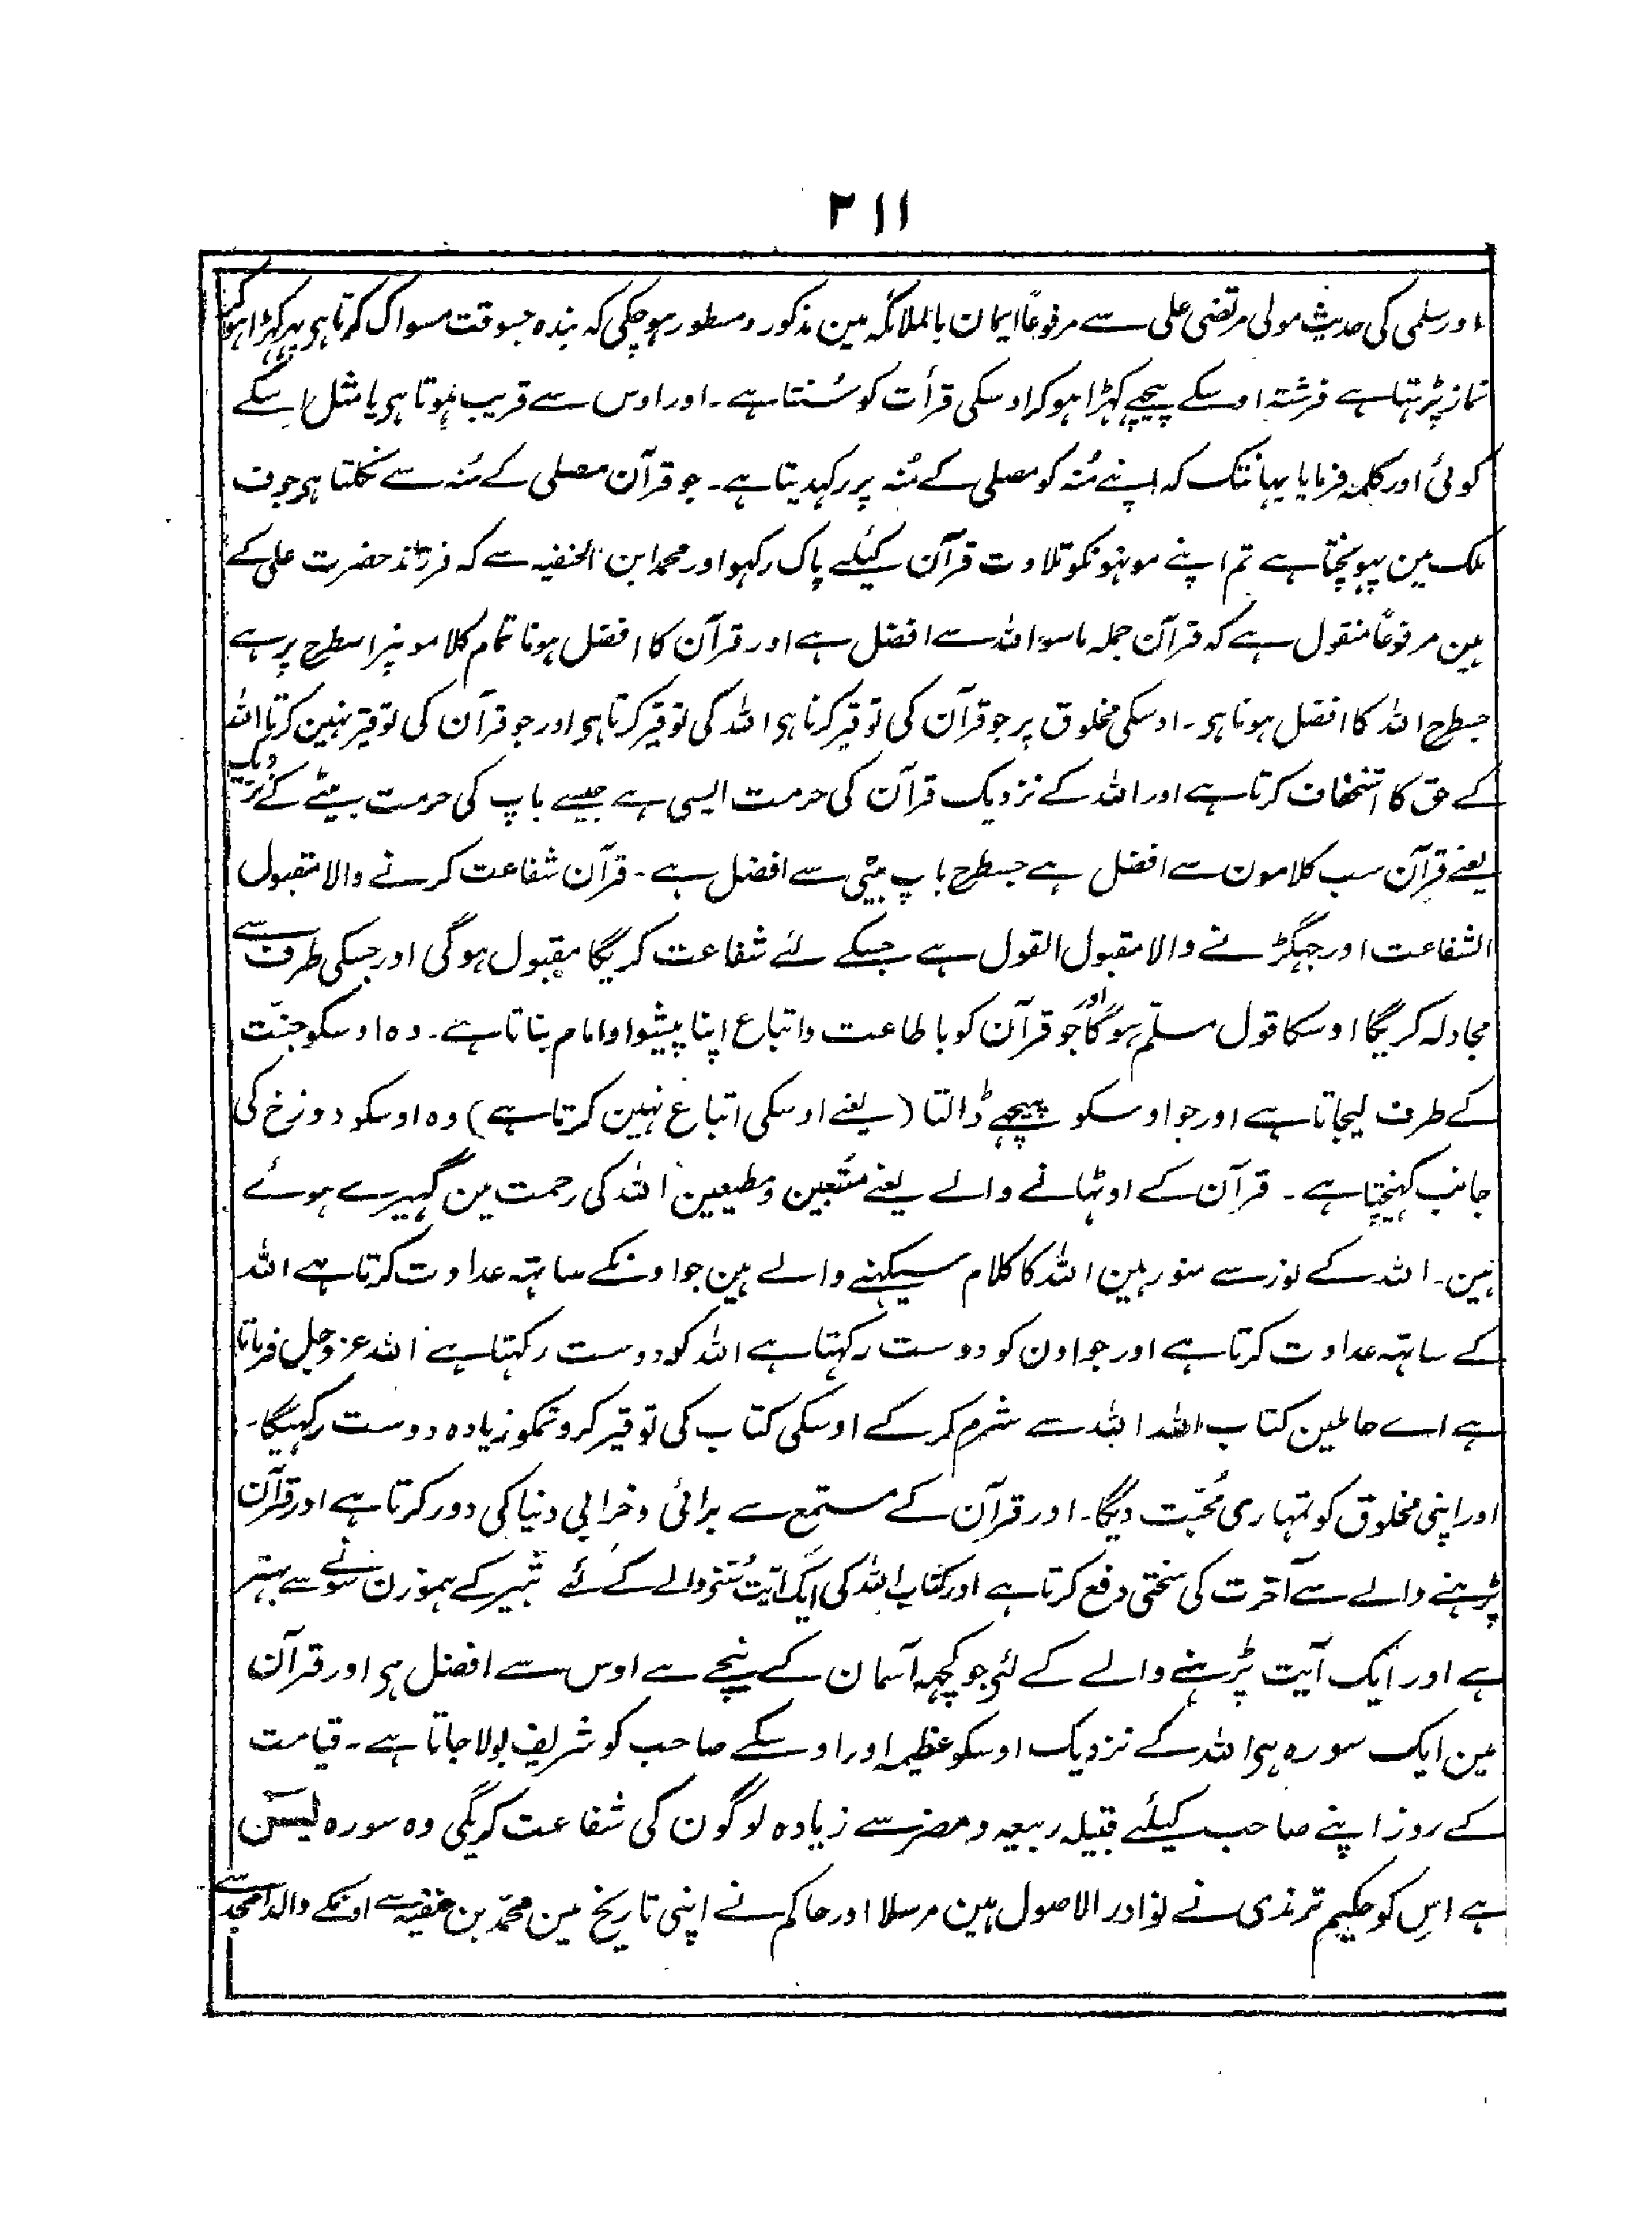 ۲۱۱
اورسلمی کی حدیث مولی مرتضی علی سے مرفوعاً ایمان بالملائکہ مین مذکور ومسطور ہوچکی کہ بندہ جسوقت مسواک کرتا ہی پہر کہڑا ہوکر
نماز پڑہتا ہے فرشتہ اوسکے پیچہے کہڑا ہوکر اوسکی قرأت کو سُنتا ہے۔ اور اوس سے قریب ہوتا ہی یا مثل اِسکے
کوئی اور کلمہ فرمایا یہانتک کہ اپنے مُنہ کو مصلی کے مُنہ پر رکہدیتا ہے۔ جو قرآن مصلی کے مُنہ سے نکلتا ہی جوف
ملک مین پہونچتا ہے تم اپنے مونہونکو تلاوت قرآن کیلئے پاک رکہو اور محمد ابن الحنفیہ سے کہ فرزند حضرت علی کے
ہین مرفوعاً منقول ہے کہ قرآن جملہ ماسوا اللہ سے افضل ہے اور قرآن کا افضل ہونا تمام کلامونپر اسطرح پر ہے
جسطرح اللہ کا افضل ہونا ہی۔ اوسکی مخلوق پر جو قرآن کی توقیر کرتا ہی اللہ کی توقیر کرتا ہی اور جو قرآن کی توقیر نہین کرتا اللہ
کے حق کا استخفاف کرتا ہے اور اللہ کے نزدیک قرآن کی حرمت ایسی ہے جیسے باپ کی حرمت بیٹے کے نزدیک
یعنے قرآن سب کلامون سے افضل ہے جسطرح باپ بیٹی سے افضل ہے۔ قرآن شفاعت کرنے والا مقبول
الشفاعت اور جہگڑنے والا مقبول القول ہے جسکے لئے شفاعت کریگا مقبول ہوگی اور جسکی طرف سے
مجادلہ کریگا اوسکا قول مسلّم ہوگا اور جو قرآن کو باطاعت واتباع اپنا پیشوا وامام بناتا ہے۔ وہ اوسکو جنّت
کے طرف لیجاتا ہے اور جو اوسکو پیچہے ڈالتا (یعنے اوسکی اتباع نہین کرتا ہے) وہ اوسکو دوزخ کی
جانب کہنیچتا ہے۔ قرآن کے اوٹہانے والے یعنے متبعین ومطیعین اللہ کی رحمت مین گہیرے ہوئے
ہین۔ اللہ کے نور سے منور ہین اللہ کا کلام سیکہنے والے ہین جو اونکے ساتہہ عداوت کرتا ہے اللہ
کے ساتہہ عداوت کرتا ہے اور جو اون کو دوست رکہتا ہے اللہ کو دوست رکہتا ہے اللہ عزوجل فرماتا
ہے اے حاملین کتاب اللہ اللہ سے شرم کرکے اوسکی کتاب کی توقیر کرو تمکو زیادہ دوست رکہیگا۔
اور اپنی مخلوق کو تمہاری مُحبّت دیگا۔ اور قرآن کے مستمع سے برائی وخرابی دنیا کی دور کرتا ہے اور قرآن
پڑہنے والے سے آخرت کی سختی دفع کرتا ہے اور کتاب اللہ کی ایک آیت سُننے والے کے لئے ثبیر کے ہموزن سونے سے بہتر
ہے اور ایک آیت پڑہنے والے کے لئی جو کچہہ آسمان کے نیچے ہے اوس سے افضل ہی اور قرآن
مین ایک سورہ ہی اللہ کے نزدیک اوسکو عظیمہ اور اوسکے صاحب کو شریف بولا جاتا ہے۔ قیامت
کے روز اپنے صاحب کیلئے قبیلہ ربیعہ ومضر سے زیادہ لوگون کی شفاعت کریگی وہ سورہ لیسٓ
ہے اِس کو حکیم ترمذی نے نوادر الاصول ہین مرسلا اور حاکم نے اپنی تاریخ مین محمّد بن حنفیہ سے اونکے والد امجد سے